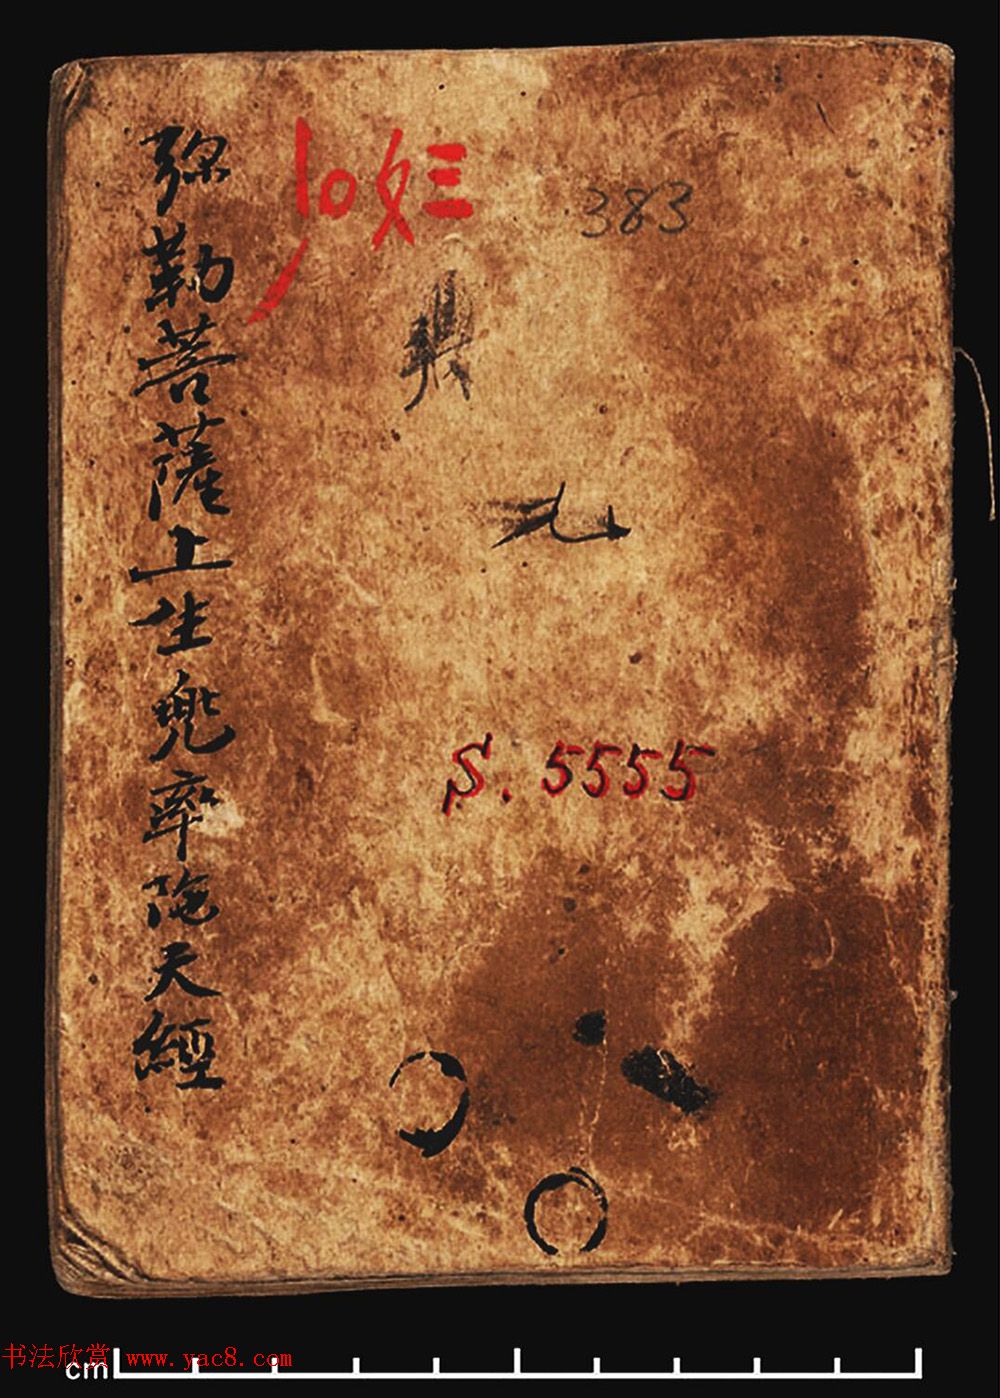 弥勒菩薩上生兜率陁天經
383
S. 5555
书法欣赏 www.yac8.com
cm